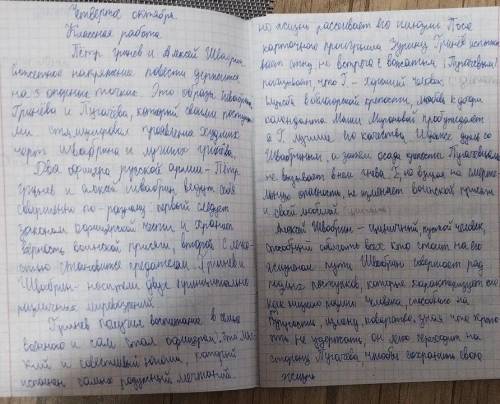 Четвертое октября.
Классная работа.
Пётр Гринёв и Алексей Швабрин.
напряжение повести держится
на 3 опорных точках. Это образы Швабрина,
Гринёва и Пугачёва, который своими поступка
ми стимулировал проявление худших
черт Швабрина и лучших Гринёва.
Два офицера русской армии - Пётр
Гринёв и Алексей Швабрин ведут себя
совершенно по-разному: первый следует
законам офицерской чести и хранит
верность воинской присяге, второй с легко-
стью становится предателем. Гринёв и
Швабрин - носители двух принципиально
различных мировоззрений.
Гринёв получил воспитание в семье
военного и сам стал офицером. Это мяг
кий и совестливый юноша, который
исполнен самых радужных мечтаний.
но жизнь рассеивает его иллюзии. После
карточного проигрыша Зурину, Гринёв испыты
вает стыд, но встреча с вожатым (Пугачёвым)
показывает что Г - хороший человек.
в Белогорской крепости, любовь к дочери
коменданта Маши Мироновой пробуждает
в Г. лучшие его качества. дуэль со
Швабриным, а затем осада крепости Пугачёвым
не вызывает в нем гнева Г, но будучи на смерте-
льную опасность, не изменяет воинской присяге
и своей любимой.
Алексей Швабрин - циничный, пустой человек,
способный оболгать всех кто стоит на его
жизненном пути. Швабрин совершает ряд
подлых поступков, которые характеризуют его
как низкого подлого человека, способного на
трусость, измену, коварство. зная что крепос
ть не удержать, он легко переходит на
сторону Пугачёва, чтобы сохранить свою
жизнь